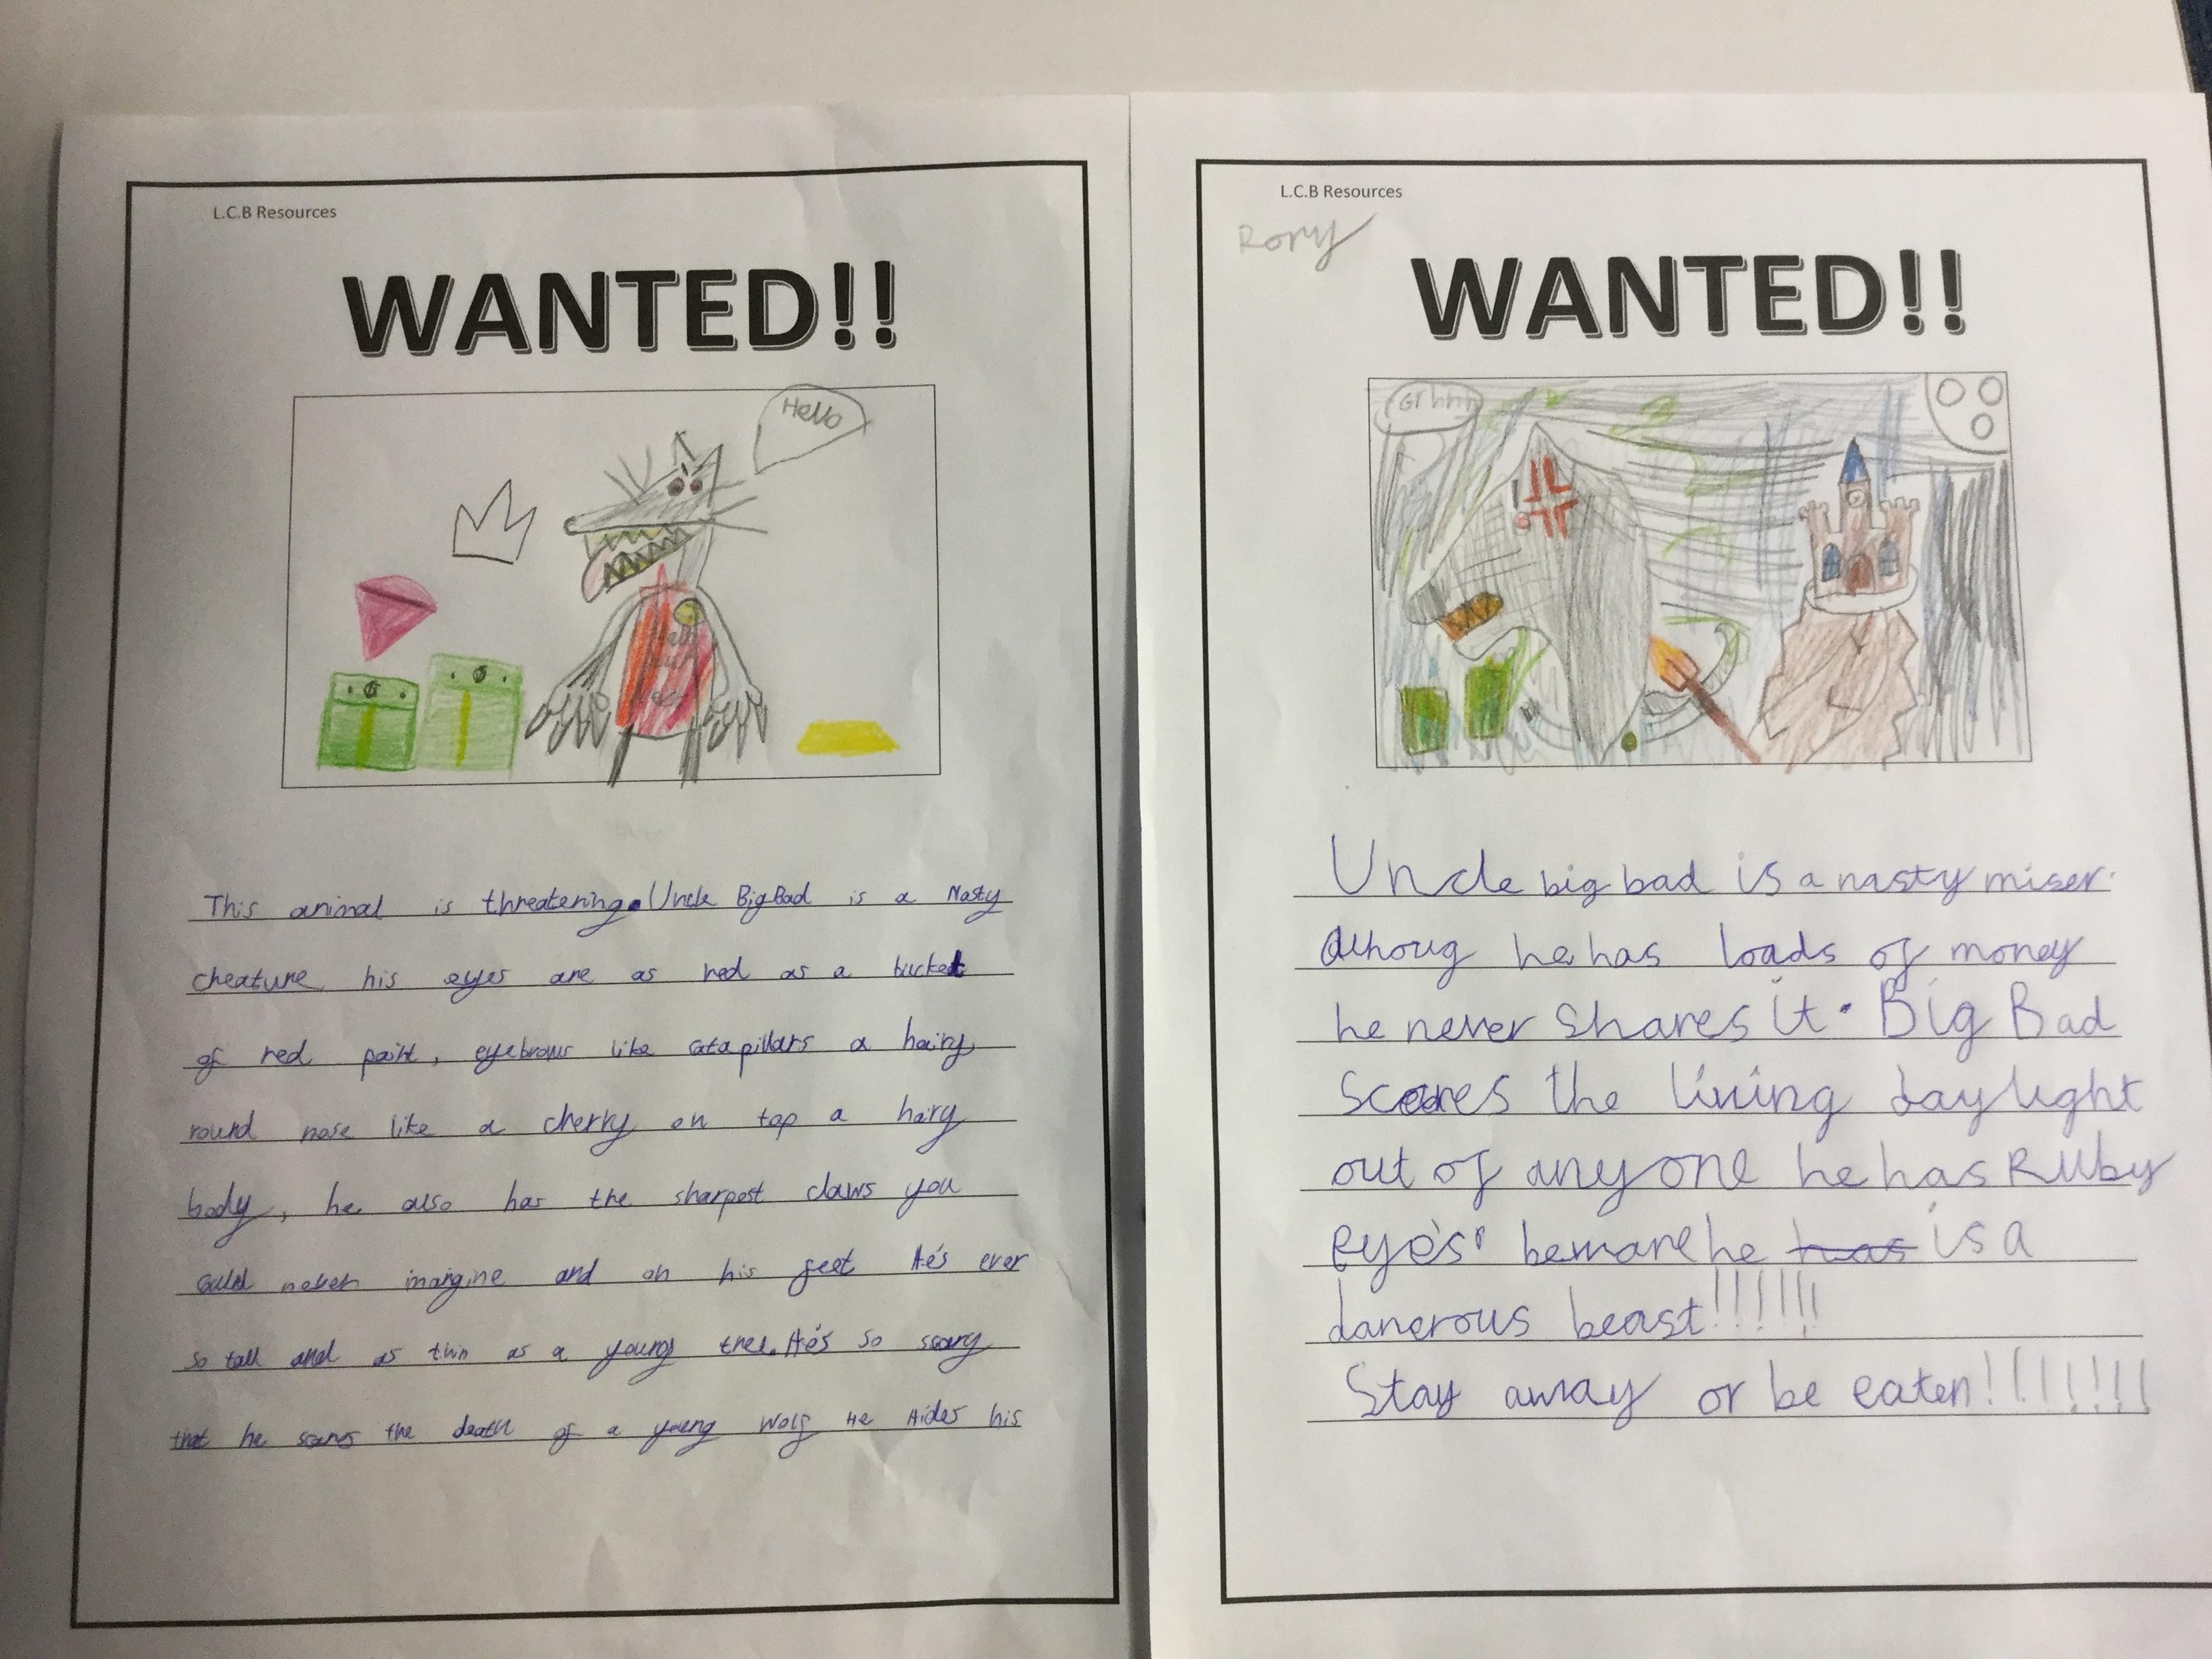 L.C.B Resources
WANTED!!
Hello
This animal is threatering. Uncle BigBad is a Nasty
cheature his eyes are as red as a bucket
of red paint, eyebrows like catapillars a hairy
round nose like a cherry on top a hairy
body, he also has the sharpest claws you
could never imargine and on his feet He's ever
so tall and as thin as a young tree. He's so scary
that he scares the death of a young Wolf He Hides his
L.C.B Resources
Rory
WANTED!!
Grhhh
Uncle big bad is a nasty miser.
althoug he has loads of money
he never shares it. Big Bad
Scares the living daylight
out of anyone he has Ruby
eye's. beware he has is a
danerous beast!!!!!!
Stay away or be eaten!!!!!!!